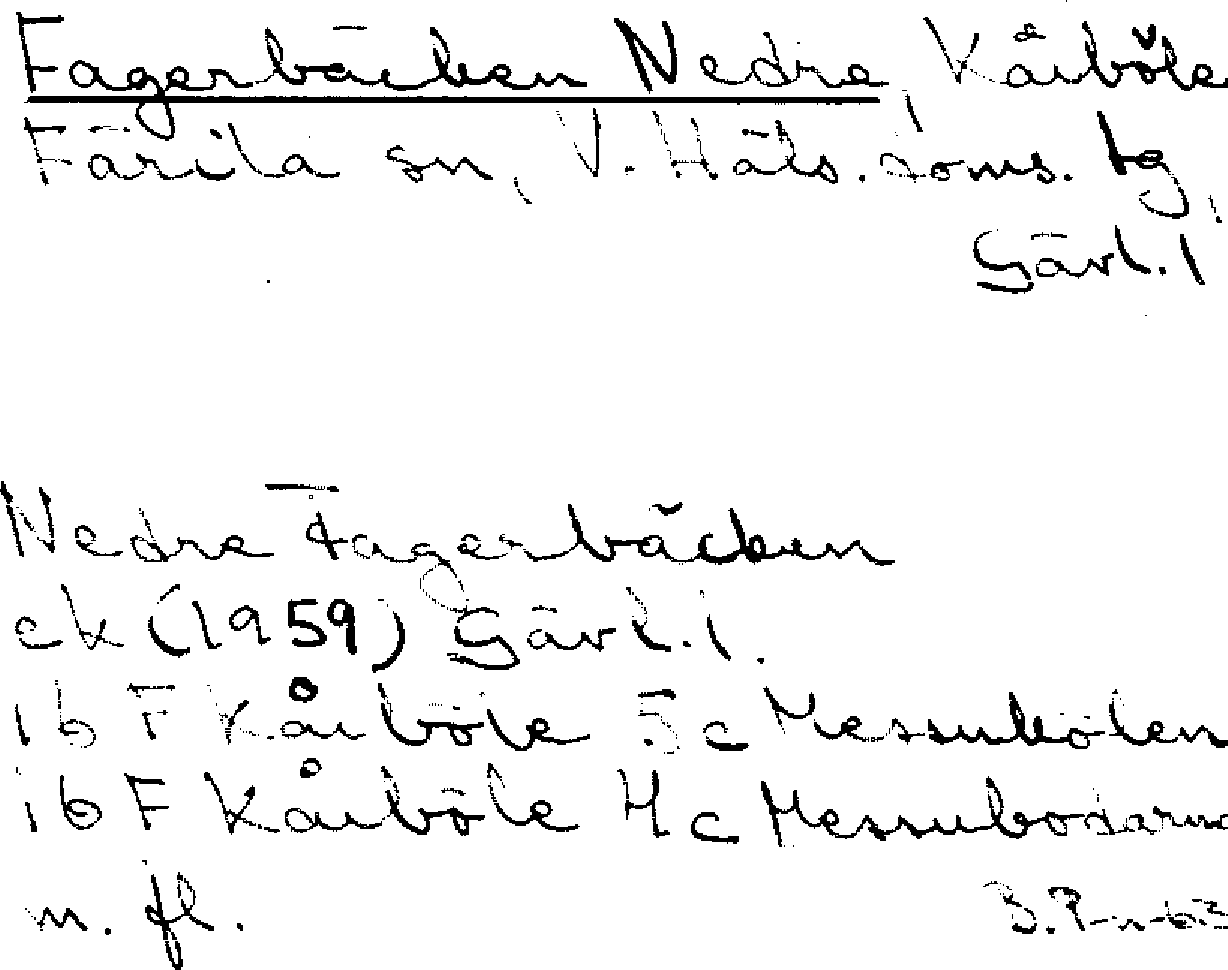 Fagerbäcken Nedre, Kårböle
Färila sn, V. Häls. doms. tg,
Gävl. l
Nedre Fagerbäcken
ek (1959) Gävl. l.
16 F Kårböle 5 c Messukölen
16 F Kårböle 4 c Messubodarna
m. fl.
B. P-n-63